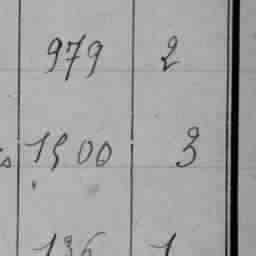 979 2
1500 3
136 1